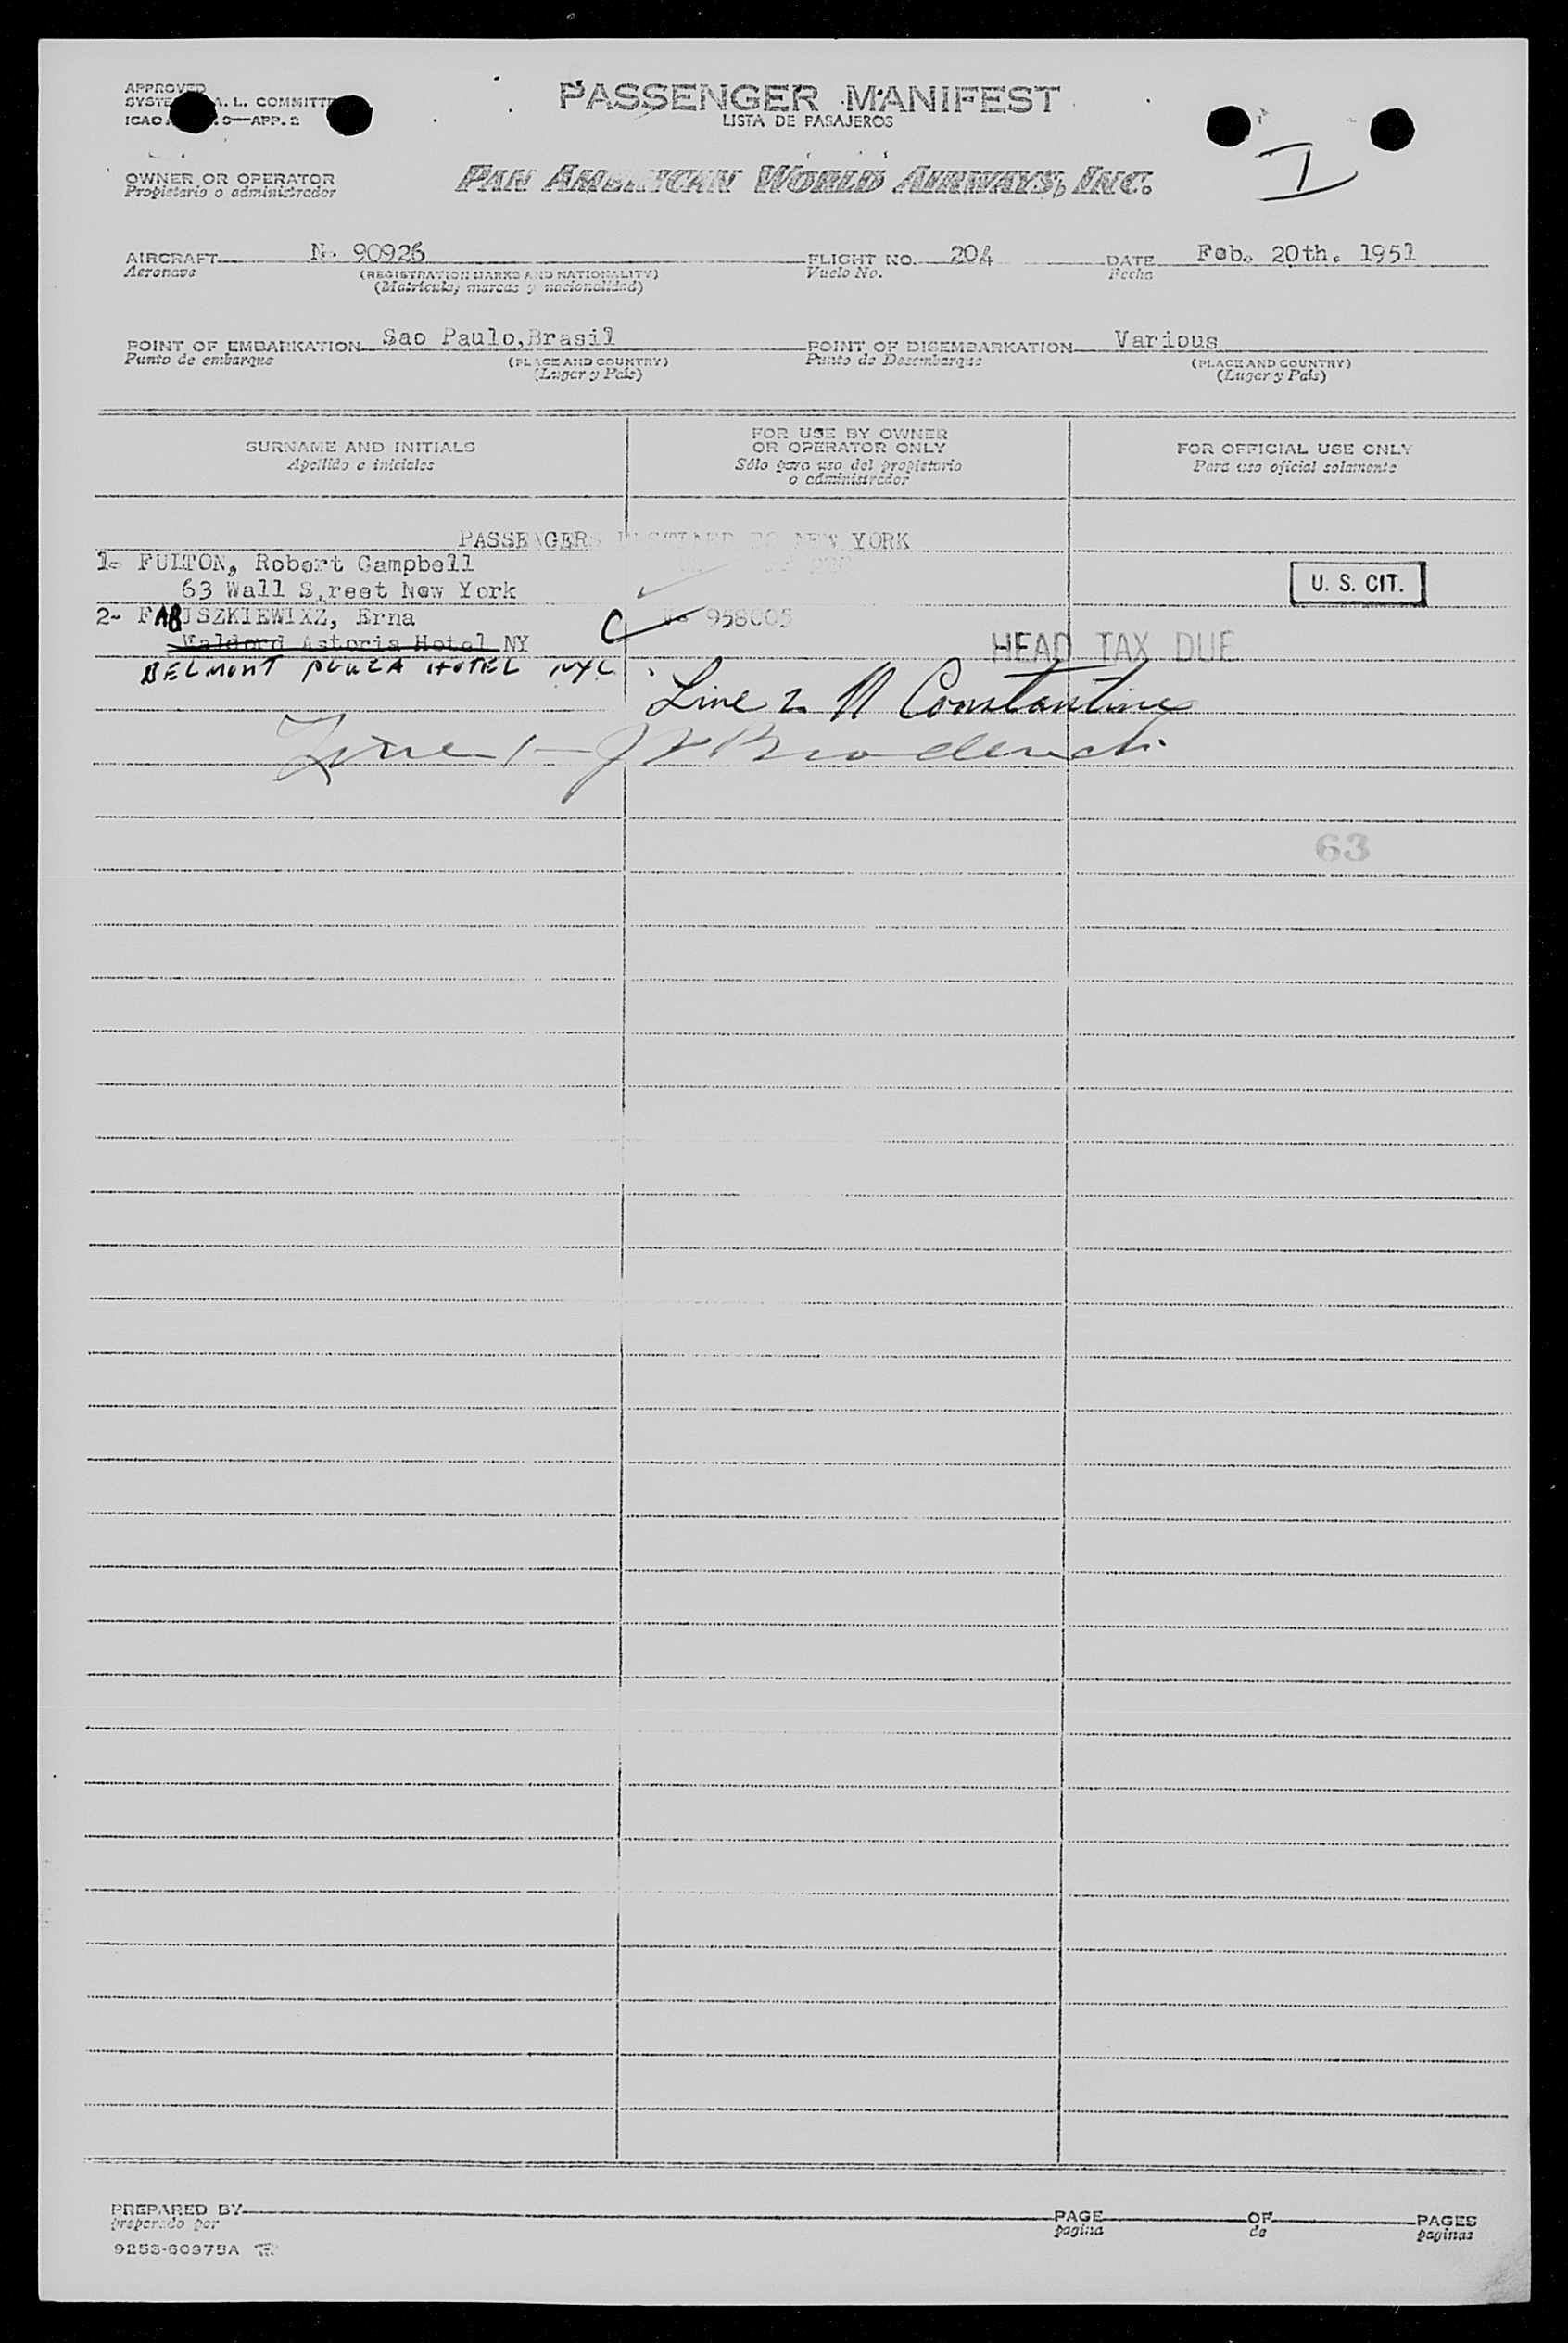 APPROVED PASSENGER MANIFEST
A. L. COMMITT
LISTA DE PASAJEROS
ICAO APP. 2
I
OWNER OR OPERATOR PAN AMERICAN WORLD AIRWAYS, INC.
Propietario o administrador
AIRCRAFT N- 90926 FLIGHT NO. 204 DATE Feb. 20th. 1951
Aeronave (REGISTRATION MARKS AND NATIONALITY) Vuelo No. Fecha
(Matricula, marcas y nacionalidad)
POINT OF EMBARKATION Sao Paulo,Brasil POINT OF DISEMBARKATION Various
Punto de embarque (PLACE AND COUNTRY) Punto de Desembarque (PLACE AND COUNTRY)
(Lugar y País) (Lugar y País)
SURNAME AND INITIALS FOR USE BY OWNER OR OPERATOR ONLY FOR OFFICIAL USE ONLY
Apellido e iniciales Sólo para uso del propietario o administrador Para uso oficial solamente
PASSENGERS NEW YORK
1- FULTON, Robert Campbell
63 Wall S,reet New York U. S. CIT.
2- FABJSZKIEWIXZ, Erna C 958005
Waldord Astoria Hotel NY HEAD TAX DUE
BELMONT PLAZA HOTEL NYC
Line 2 Constantine
Line 1-
63
PREPARED BY PAGE OF PAGES
preparado por pagina de paginas